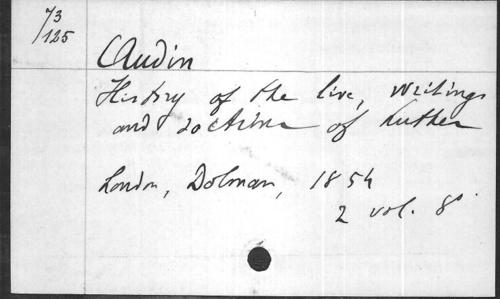 73/125
Audin
History of the live, writings
and doctrine of Luther
London, Dolman, 1854
2 vol. 8°